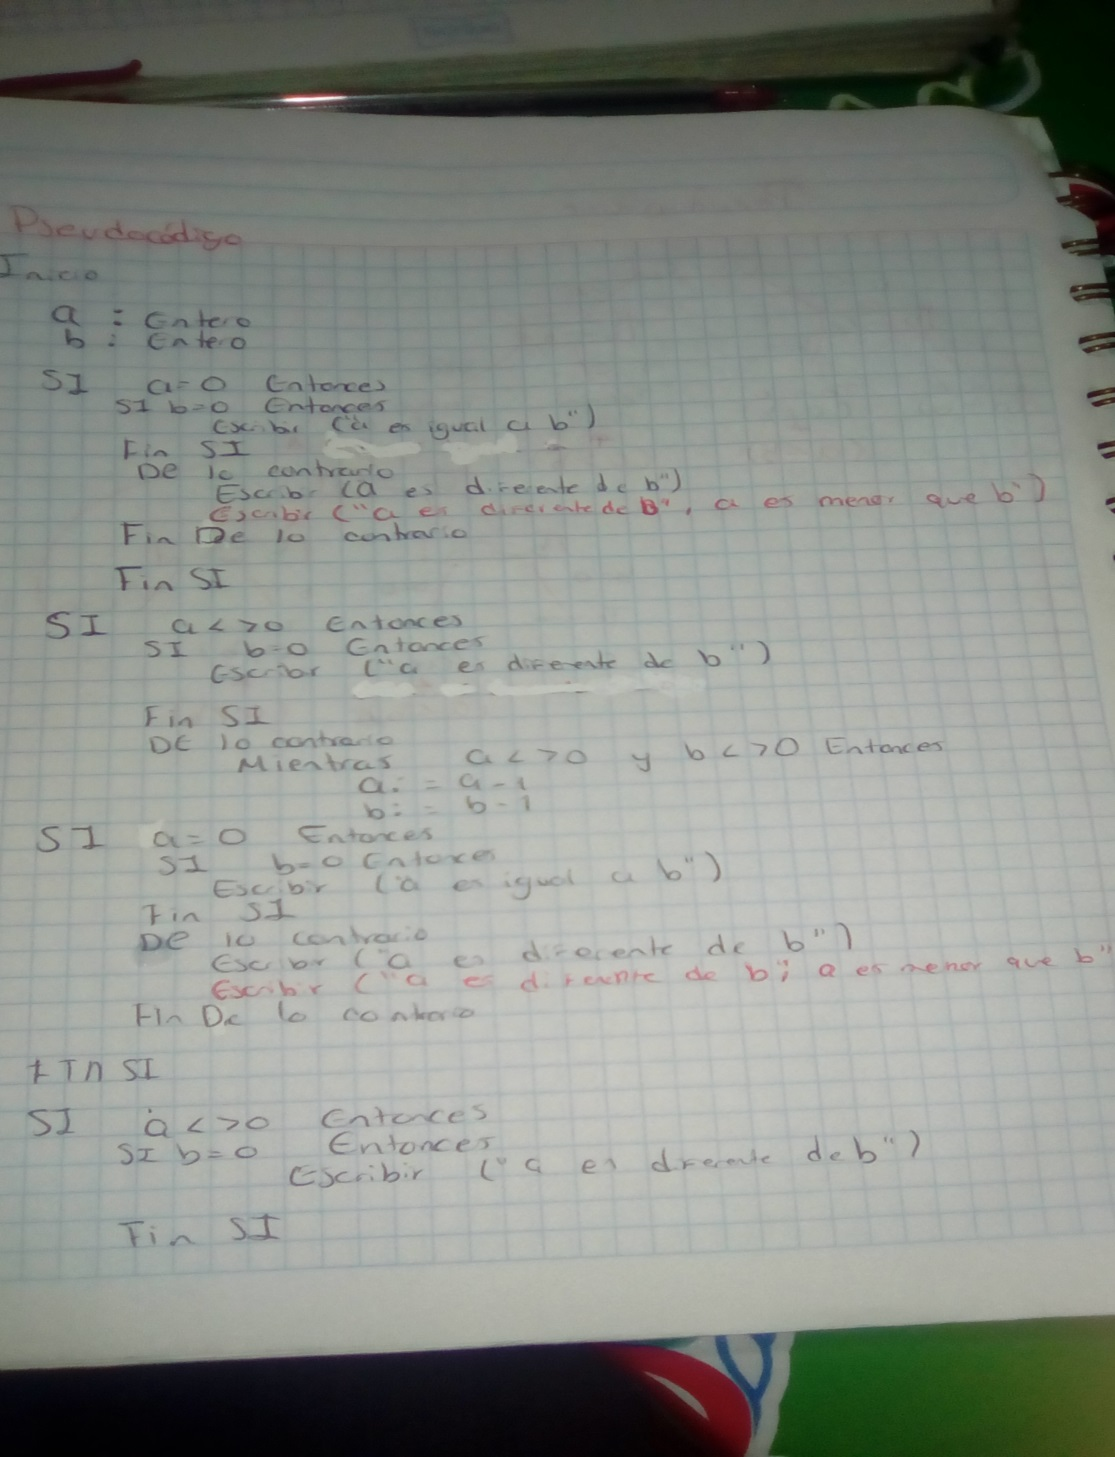 Pseudocódigo
Inicio
a : Entero
b : Entero
SI a=0 Entonces
SI b=0 Entonces
Escribir ("a es igual a b")
Fin SI
De lo contrario
Escribir (a es diferente de b")
Escribir ("a es diferente de B", a es menor que b")
Fin De lo contrario
Fin SI
SI a<>0 Entonces
SI b=0 Entonces
Escribir ("a es diferente de b")
Fin SI
De lo contrario
Mientras a<>0 y b<>0 Entonces
a:=a-1
b:=b-1
SI a=0 Entonces
SI b=0 Entonces
Escribir ("a es igual a b")
Fin SI
De lo contrario
Escribir ("a es diferente de b")
Escribir ("a es diferente de b; a es menor que b"
Fin De lo contrario
Fin SI
SI a<>0 Entonces
SI b=0 Entonces
Escribir ("a es diferente de b")
Fin SI